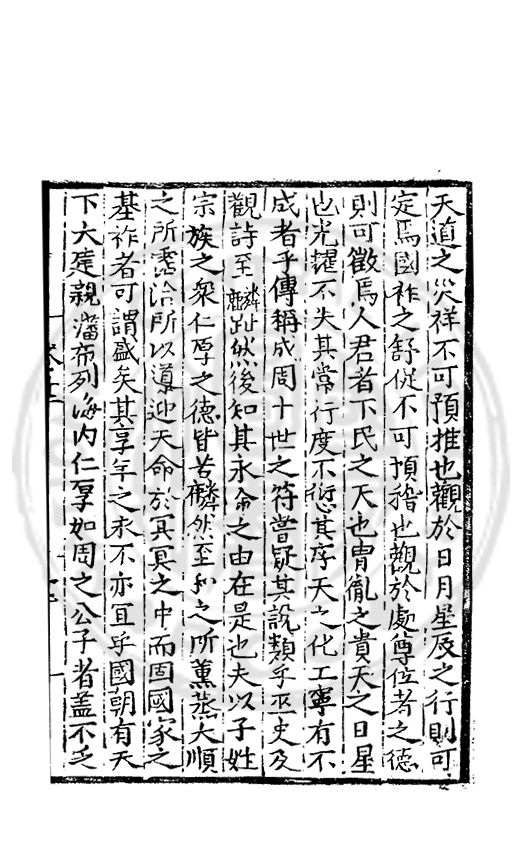 天道之災祥不可預推也觀於日月星辰之行則可
定焉國祚之舒促不可預稽也觀於處尊位者之德
則可徵焉人君者下民之天也冑胤之貴天之日星
也光耀不失其常行度不愆其序天之化工寧有不
成者乎傳稱成周十世之符嘗疑其說類乎巫史及
觀詩至麟趾然後知其永命之由在是也夫以子姓
宗族之衆仁厚之德皆若麟然至和之所薰蒸大順
之所霑洽所以導迎天命於冥冥之中而固國家之
基祚者可謂盛矣其享年之永不亦宜乎國朝有天
下大建親藩布列海内仁厚如周之公子者盖不乏